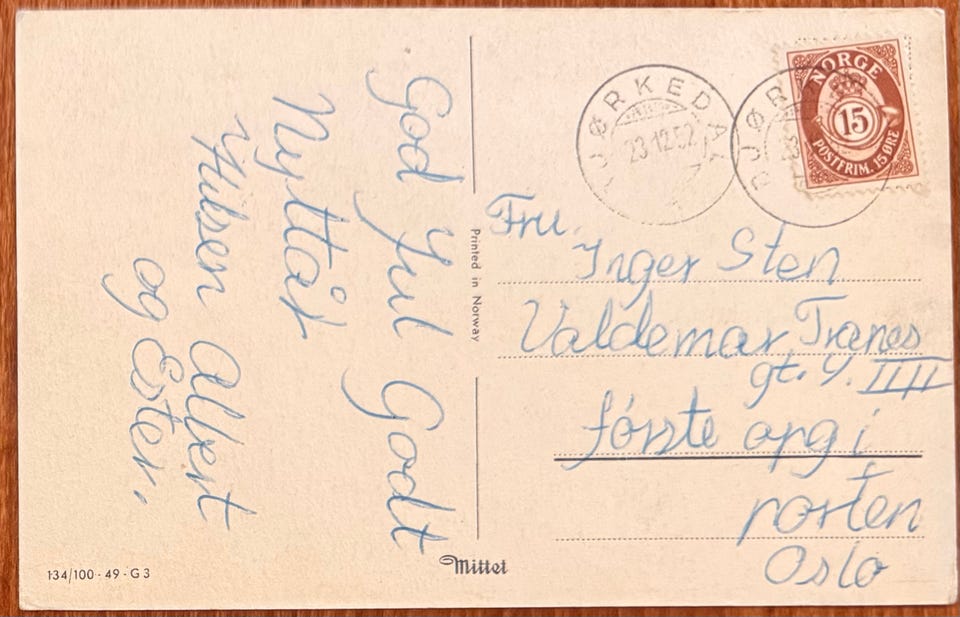 God Jul Godt
Nyttår
Hilsen Albert
og Ester.
134/100 - 49 - G 3
Printed in Norway
Mittet
BJØRKEDAL
23.12.52
NORGE
15
POSTFRIM. 15 ØRE
Fru.
Inger Sten
Valdemar Tranes
gt.
første opg i
porten
Oslo